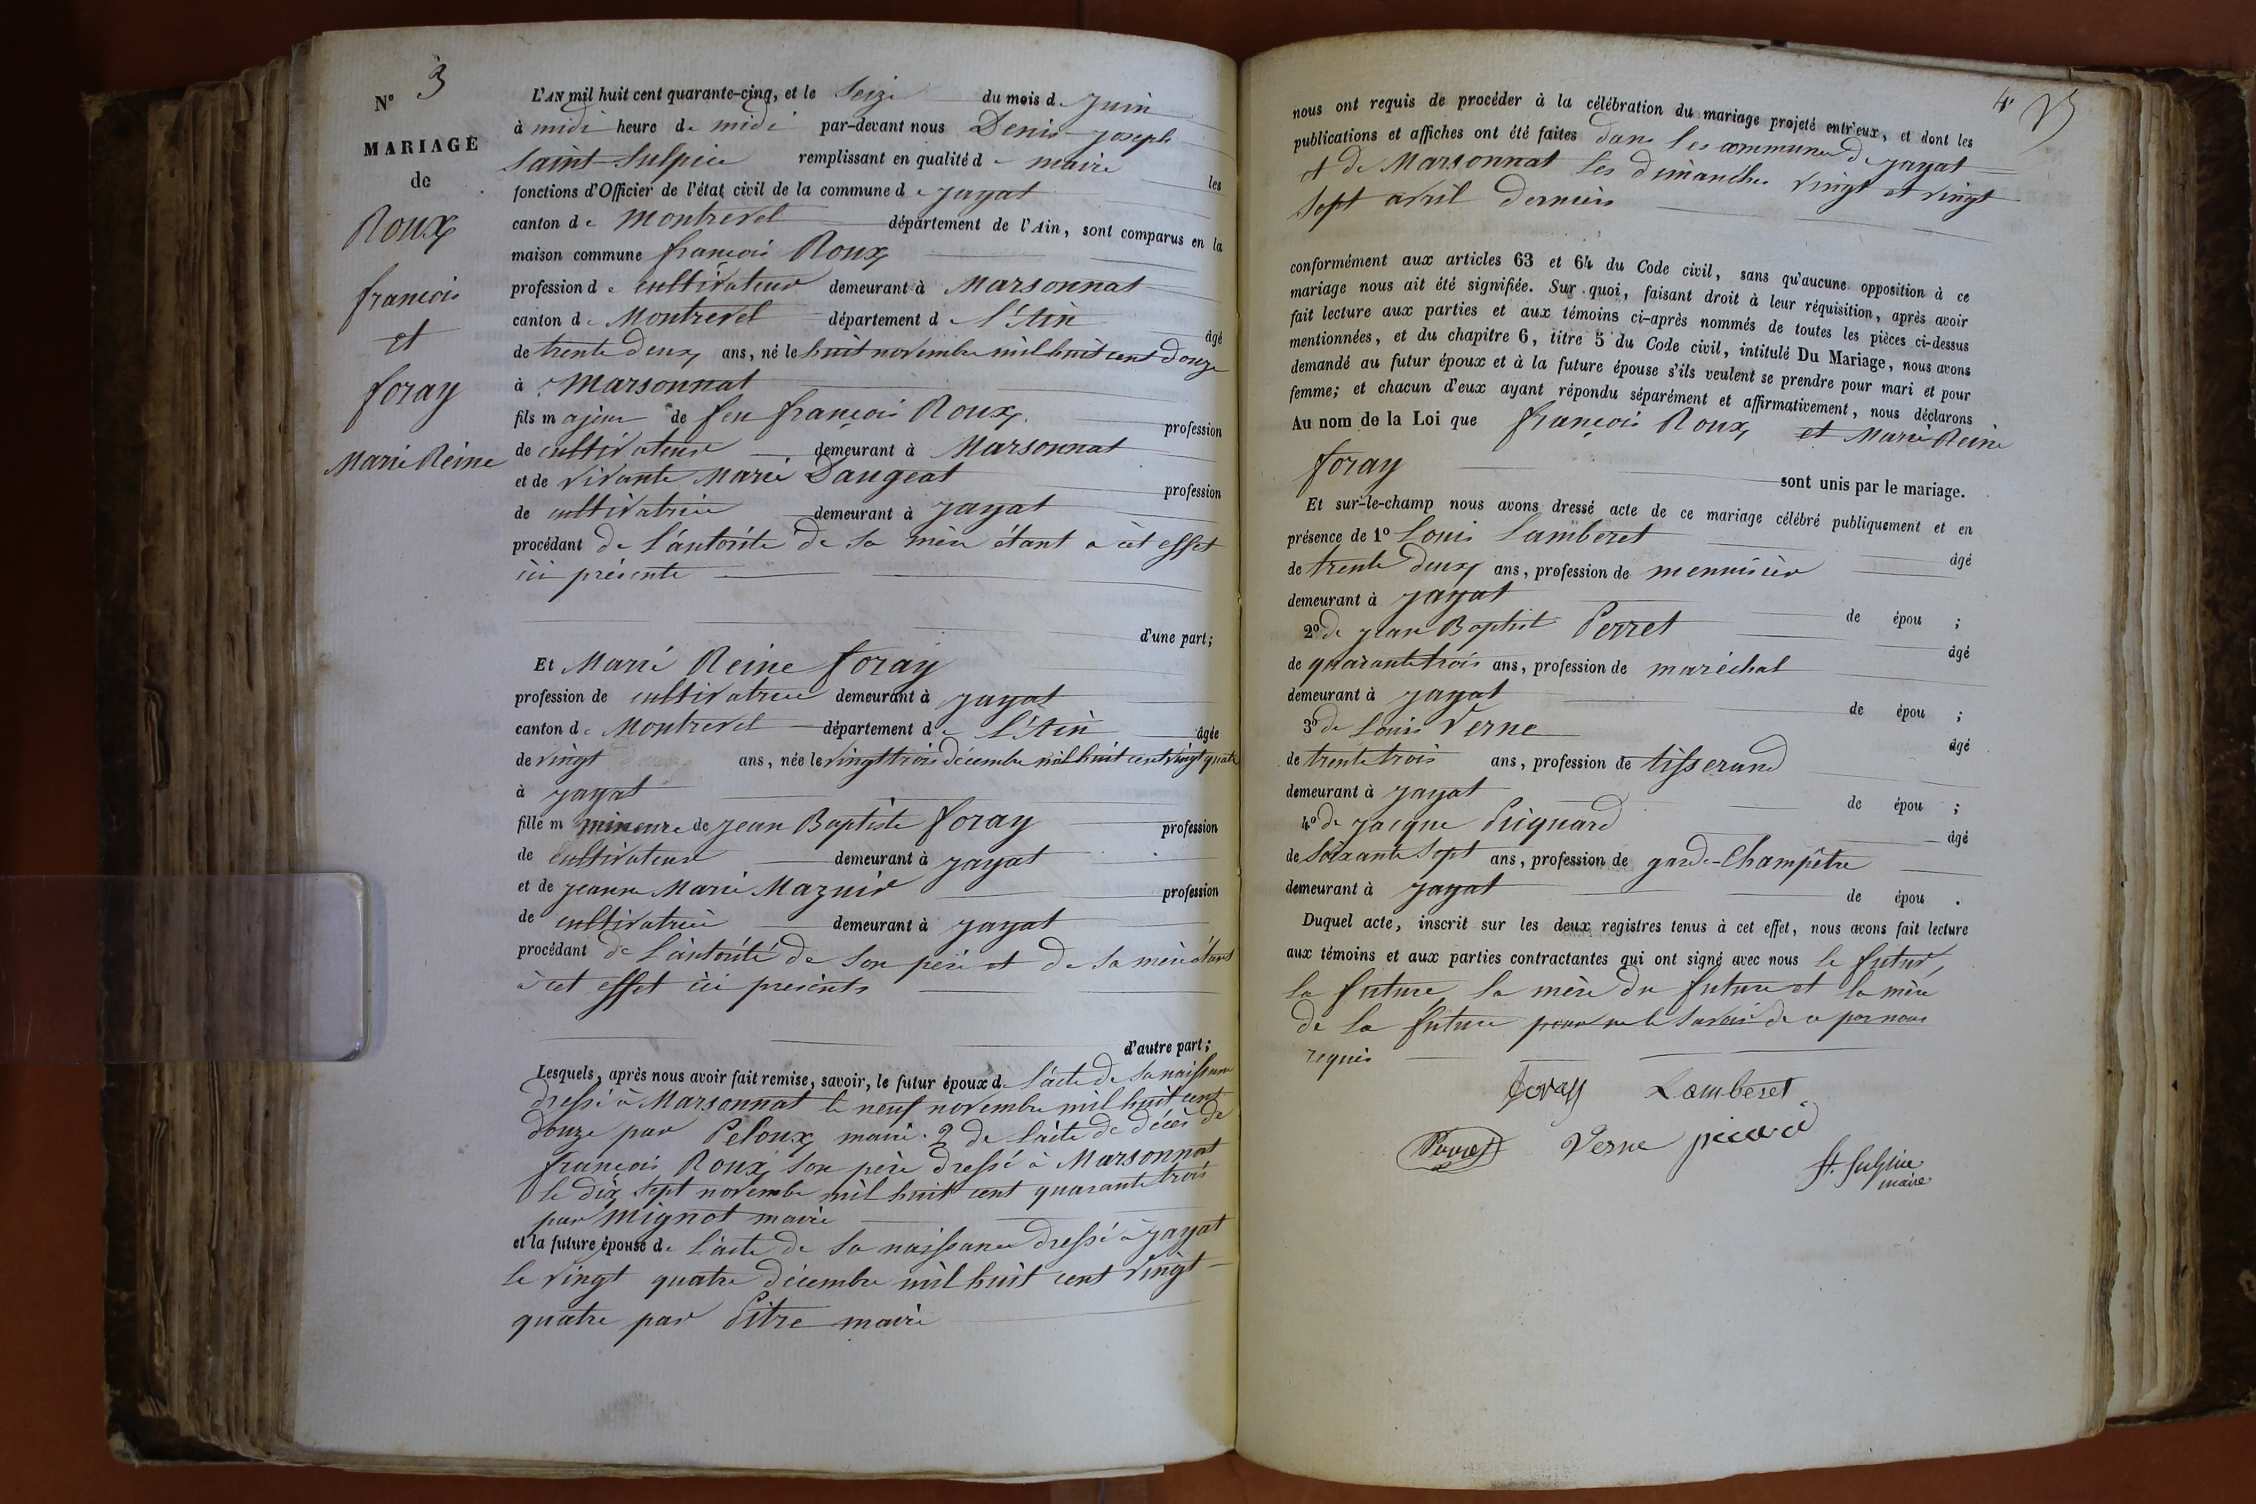 N° 3
MARIAGE
de
Roux
francois
et
foray
Marie Reine
L'AN mil huit cent quarante-cinq, et le Seize du mois de Juin
à midi heure de midi par-devant nous Denis Joseph
Saint Sulpice remplissant en qualité de maire les
fonctions d'Officier de l'état civil de la commune de jayat
canton de Montrevel département de l'Ain, sont comparus en la
maison commune francois Roux
profession de cultivateur demeurant à Marsonnat
canton de Montrevel département de L'Ain âgé
de trente deux ans, né le huit novembre mil huit cent douze
à Marsonnat
fils majeur de feu françois Roux profession
de cultivateur demeurant à Marsonnat
et de vivante Marie Daugeat profession
de cultivatrice demeurant à jayat
procédant de l'autorité de sa mère étant a cèt effet
ici présente
d'une part;
Et Marie Reine foray
profession de cultivatrice demeurant à jayat
canton de Montrevel département de L'Ain âgée
de vingt ans, née le vingt trois décembre mil huit cent vingt quatre
à jayat
fille mineure de jean Baptiste foray profession
de cultivateur demeurant à jayat
et de jeanne Marie Mazuir profession
de cultivatrice demeurant à jayat
procédant de l'autorité de son père et de sa mère étant
à cet effet ici présents
d'autre part;
Lesquels, après nous avoir fait remise, savoir, le futur époux de l'acte de sa naissance
dressé à Marsonnat le neuf novembre mil huit cent
douze par Peloux maire. 2 de l'acte de décès de
françois Roux son père dressé à Marsonnat
le dix sept novembre mil huit cent quarante trois
par Mignot maire
et la future épouse de l'acte de sa naissance dressé à jayat
le vingt quatre décembre mil huit cent vingt
quatre par Pitre maire
4
nous ont requis de procéder à la célébration du mariage projeté entr'eux, et dont les
publications et affiches ont été faites dans les communes de jayat
et de Marsonnat les dimanches vingt et vingt
sept avril derniers
conformément aux articles 63 et 64 du Code civil, sans qu'aucune opposition à ce
mariage nous ait été signifiée. Sur quoi, faisant droit à leur réquisition, après avoir
fait lecture aux parties et aux témoins ci-après nommés de toutes les pièces ci-dessus
mentionnées, et du chapitre 6, titre 5 du Code civil, intitulé Du Mariage, nous avons
demandé au futur époux et à la future épouse s'ils veulent se prendre pour mari et pour
femme; et chacun d'eux ayant répondu séparément et affirmativement, nous déclarons
Au nom de la Loi que françois Roux et Marie Reine
foray
sont unis par le mariage.
Et sur-le-champ nous avons dressé acte de ce mariage célébré publiquement et en
présence de 1° Louis Lamberet âgé
de trente deux ans, profession de menuisier
demeurant à jayat de épou ;
2° de jean Baptist Perret âgé
de quarante trois ans, profession de maréchal
demeurant à jayat de épou ;
3° de Louis Verne âgé
de trente trois ans, profession de tisserand
demeurant à jayat de épou ;
4° de jacque Piquard âgé
de Soixante Sept ans, profession de garde-Champêtre
demeurant à jayat de épou .
Duquel acte, inscrit sur les deux registres tenus à cet effet, nous avons fait lecture
aux témoins et aux parties contractantes qui ont signé avec nous le futur,
la future la mère du future et la mère
de la future pour ne le savoir de ce par nous
requis
foray Lamberet
Perret Verne picard
St. Sulpice
maire